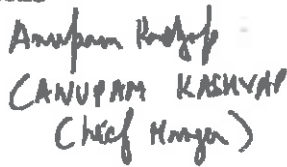 Anupam Kashyap
(ANUPAM KASHYAP
(Chief Manager)